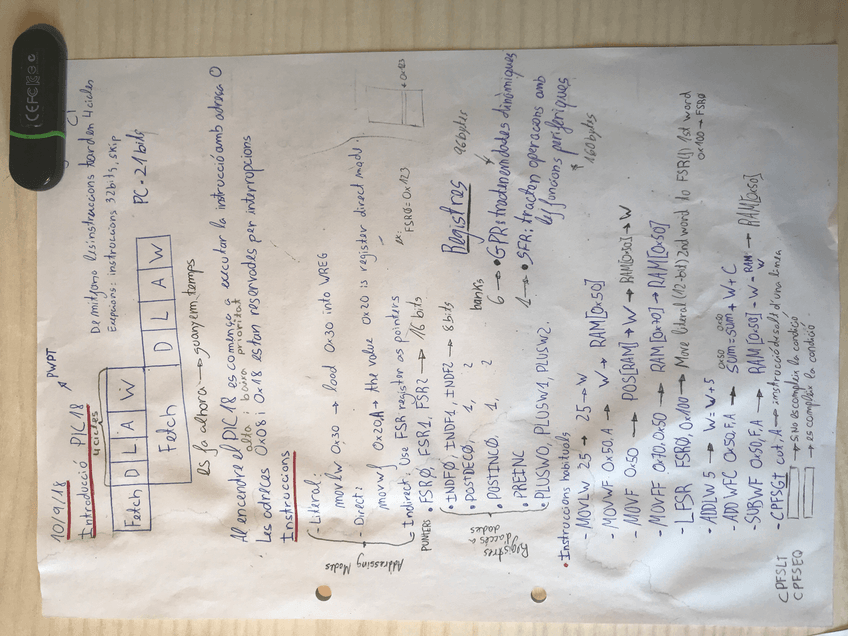 10/9/18
PWPT
Introducció PIC18
4 cicles
De mitjana les instruccions tarden 4 cicles
Excepcions: instruccions 32 bits, skip
Fetch D L A W
Fetch D L A W
PC · 21 bits
es fa alhora → guanyem temps
Al encendre el PIC18 es comença a executar la instrucció amb adreça 0
alta i baixa prioritat
Les adreces 0x08 i 0x18 estan reservades per interrupcions
Instruccions
Addressing Modes
- Literal:
movlw 0x30 → load 0x30 into WREG
- Direct:
movwf 0x20,A → the value 0x20 is register direct mode.
- Indirect: Use FSR register as pointers
ex: FSR0 = 0x123
0x123
PUNTERS
• FSR0, FSR1, FSR2 → 16 bits
Registres d'accés a dades
• INDF0, INDF1, INDF2 → 8 bits
• POSTDEC0, 1, 2
• POSTINC0, 1, 2
• PREINC
• PLUSW0, PLUSW1, PLUSW2.
Registres
96 bytes
banks
6 → • GPR: tracten amb dades dinàmiques
1 → • SFR: tracten operacions amb les funcions perifèriques
160 bytes
• Instruccions habituals
- MOVLW 25 → 25 → W
- MOVWF 0x50,A → W → RAM[0x50]
- MOVF 0x50 → POS[RAM] → W → RAM[0x50] → W
- MOVFF 0x70,0x50 → RAM[0x70] → RAM[0x50]
- LFSR FSR0, 0x100 → Move literal (12-bit) 2nd word to FSR(f) 1st word
0x100 → FSR0
• ADDLW 5 → W = W + 5
- ADDWFC 0x50,F,A → sum = sum + W + C
0x50 0x50
- SUBWF 0x50,F,A → RAM[0x50] - W → RAM[0x50]
- CPFSGT cut, A → instrucció de salt d'una linea
→ si No es compleix la condició
→ es compleix la condició
CPFSLT
CPFSEQ